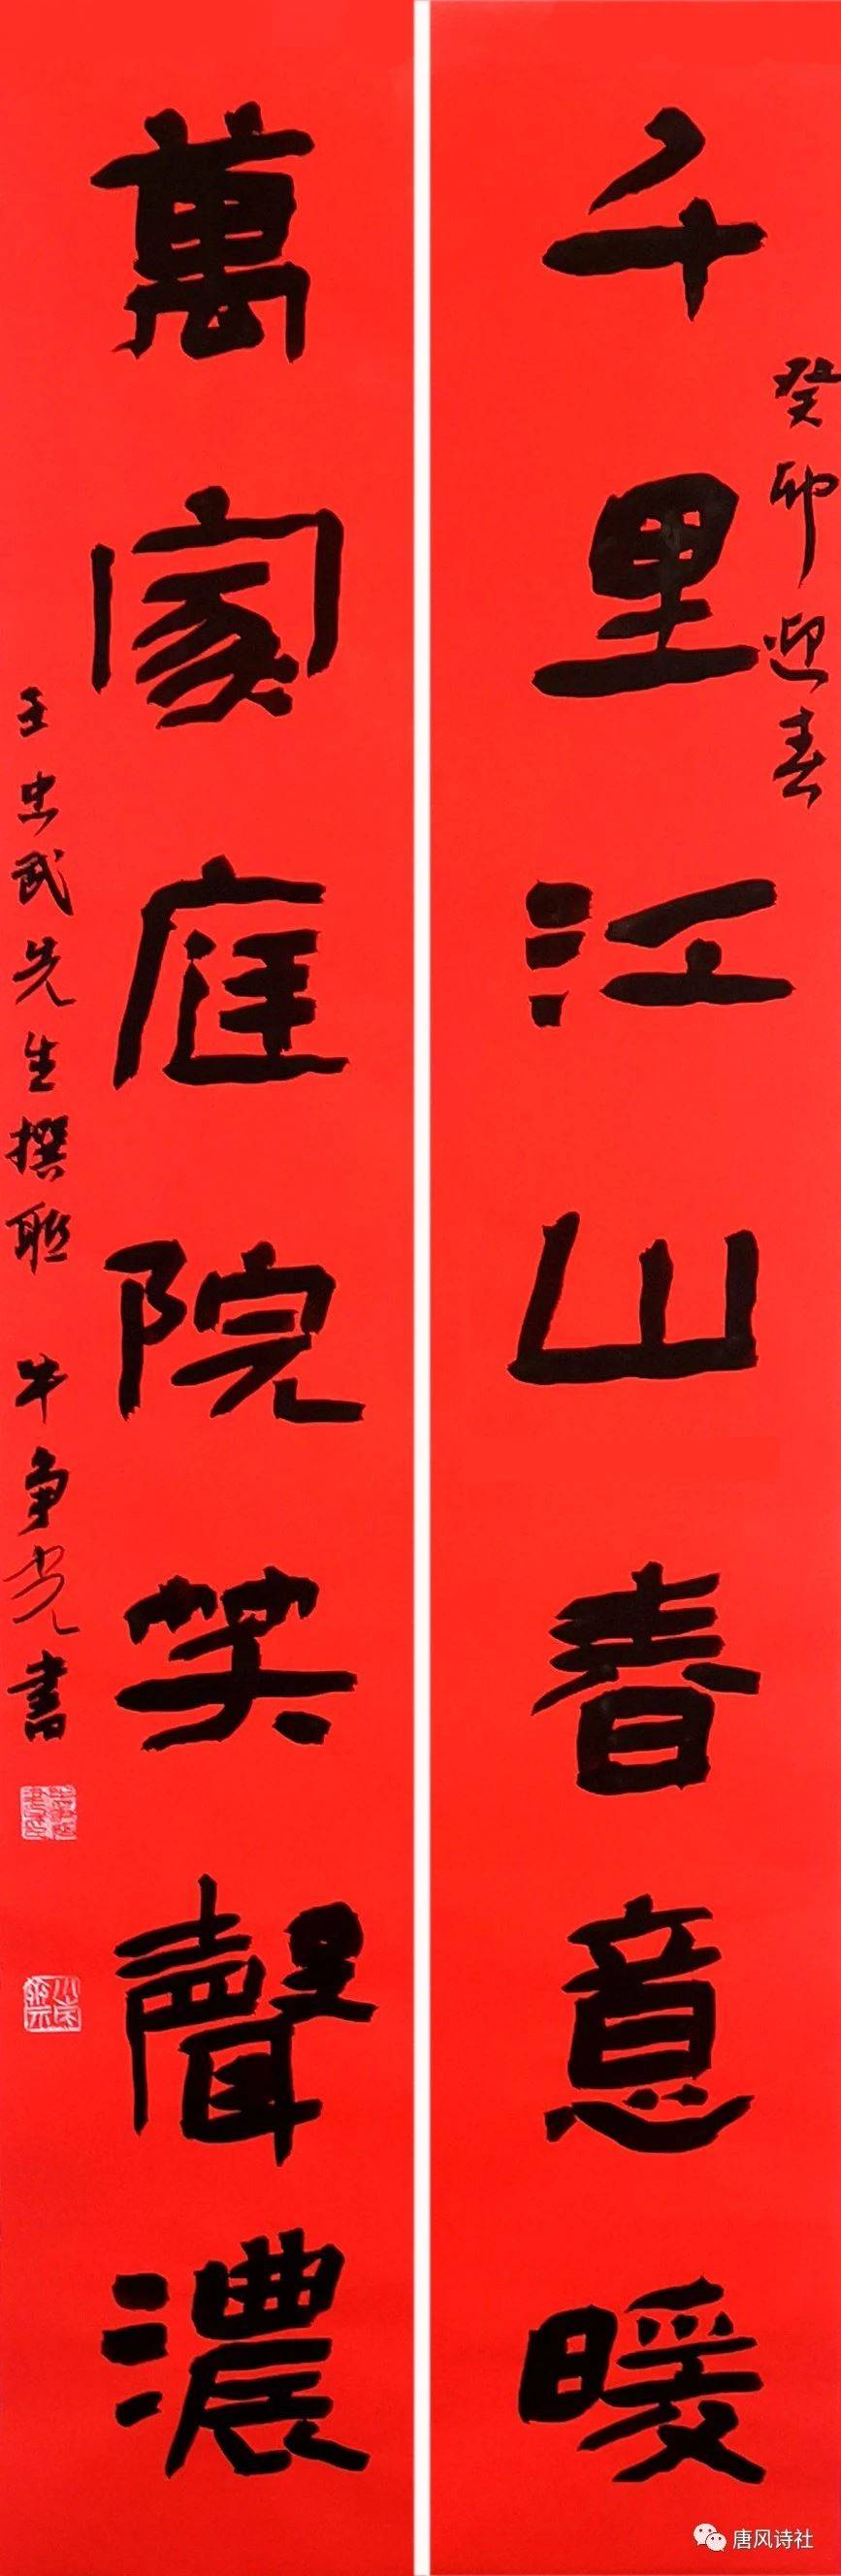 千里江山春意暖
癸卯迎春
萬家庭院笑聲濃
王忠武先生撰联 牛争光書
唐风诗社